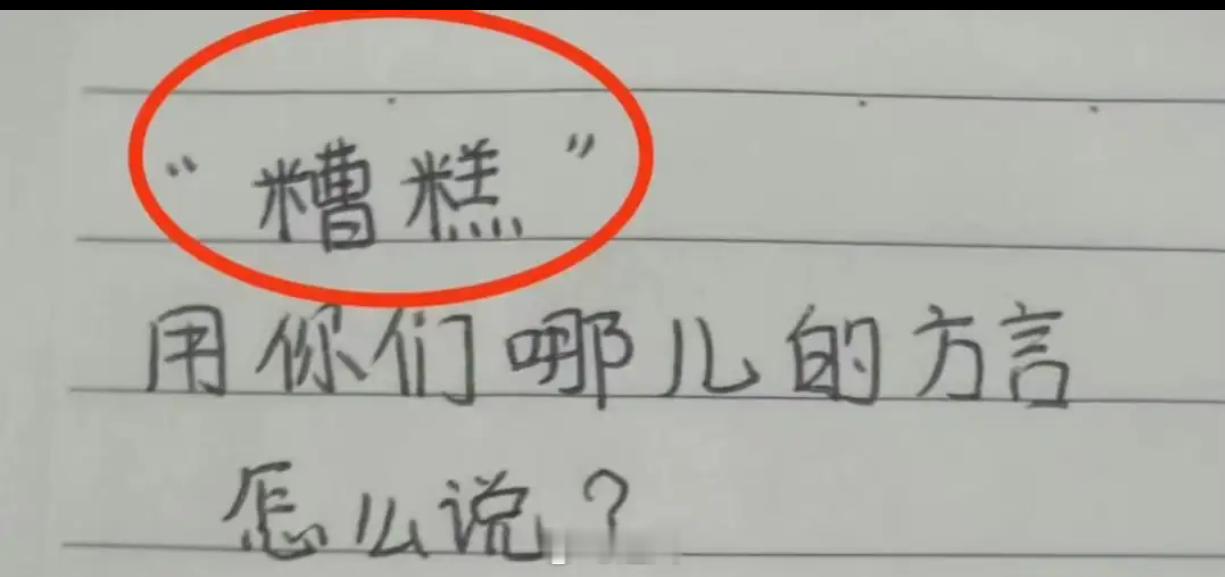 “糟糕”
用你们哪儿的方言
怎么说?